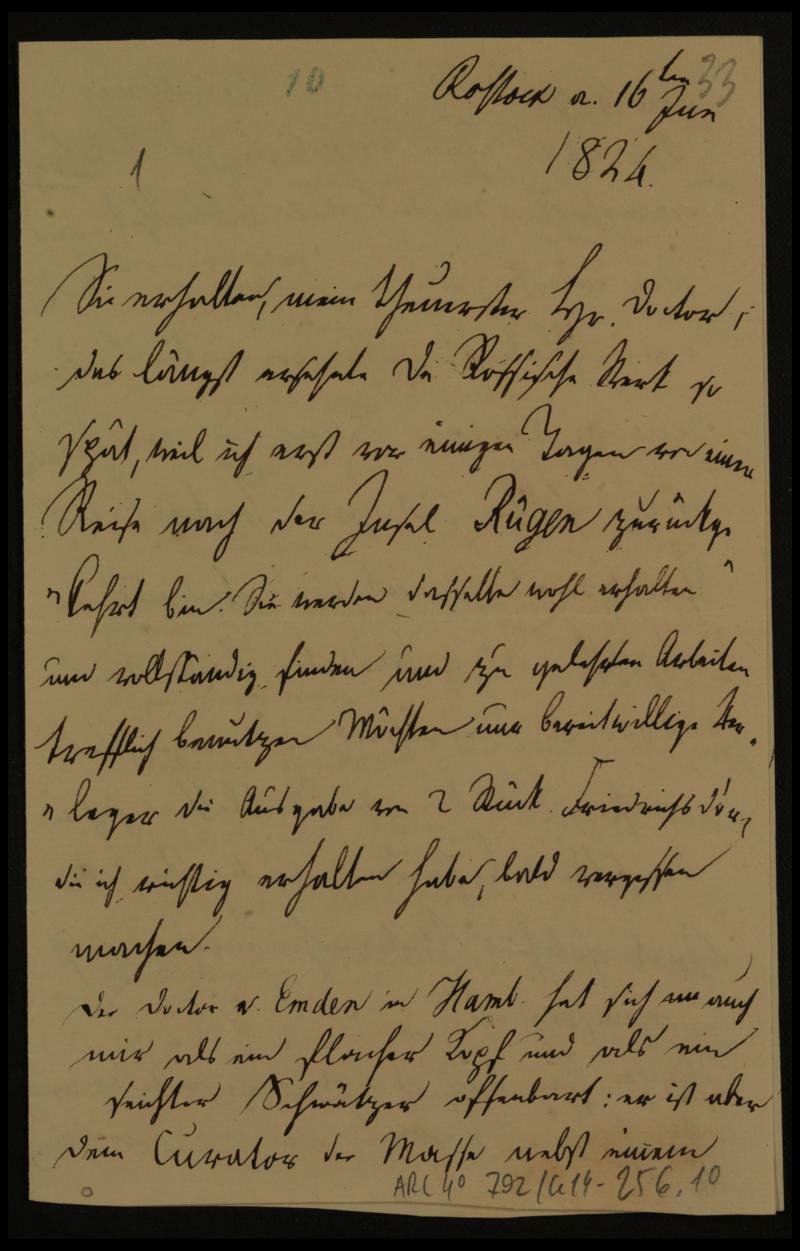 10
33
Rostock d. 16 ten
Jun
1824.
1
Sie erhalten, mein theuerster Hr. Doctor,
das längst ersehnte De Rossische Werk so
spät, weil ich erst vor einigen Tagen von einer
Reise nach der Insel Rügen zurückge-
kehrt bin. Sie werden dasselbe wohl erhalten
und vollständig finden und zu gelehrten Arbeiten
trefflich benutzen. Möchten nur bereitwillige Ver-
leger die Ausgabe von 2 Stück Friedrichsdór,
die ich richtig erhalten habe, bald vergessen
machen.
Der Doctor v. Emden in Hamb. hat sich nun auch
mir als ein flacher Kopf und als ein
seichter Schwätzer offenbart: er ist aber
dem Curator der Masse nebst einem
ARC 4° 792/G14-256.10